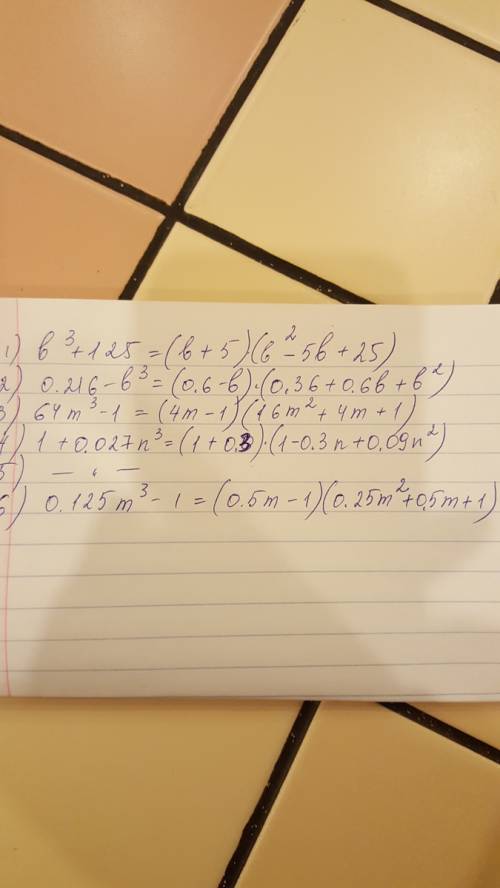 1) b³+125=(b+5)·(b²-5b+25)
2) 0.216-b³=(0.6-b)·(0,36+0.6b+b²)
3) 64m³-1=(4m-1)(16m²+4m+1)
4) 1+0.027n³=(1+0.3)·(1-0.3n+0,09n²)
5) — " —
6) 0.125m³-1=(0.5m-1)(0.25m²+0,5m+1)